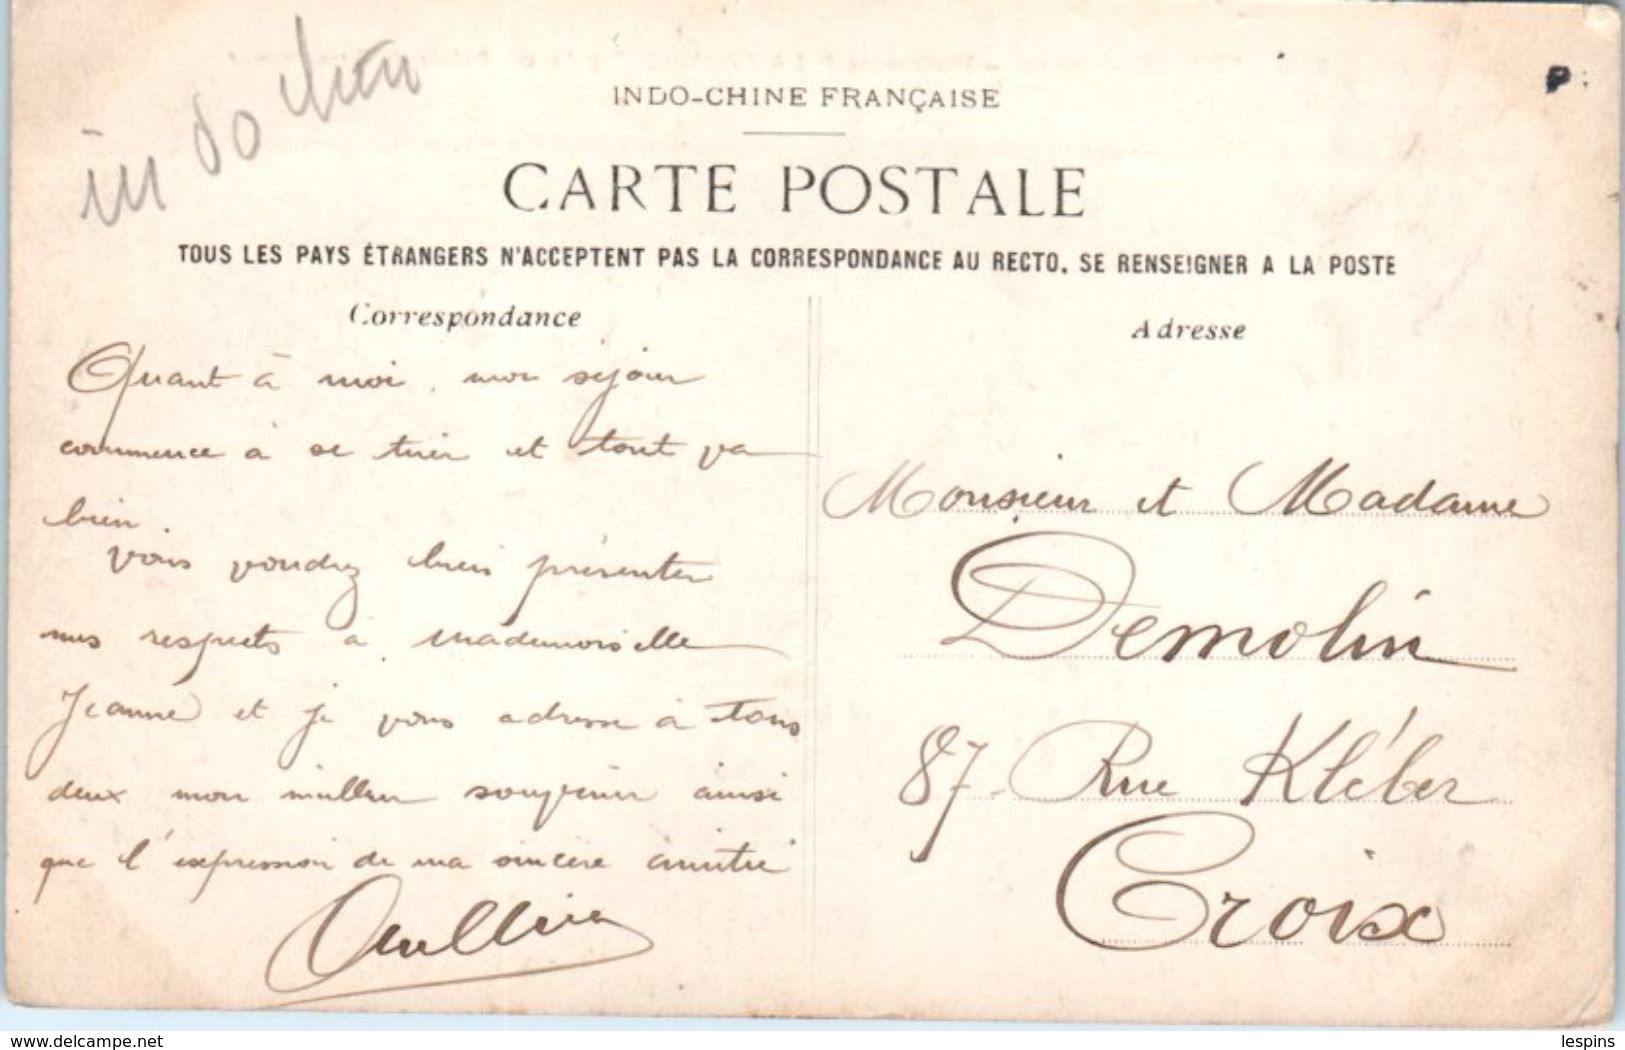 indo chine
INDO-CHINE FRANÇAISE
CARTE POSTALE
TOUS LES PAYS ÉTRANGERS N'ACCEPTENT PAS LA CORRESPONDANCE AU RECTO. SE RENSEIGNER A LA POSTE
Correspondance
Quant à moi, mon séjour
commence à se tirer et tout va
bien.
Vous voudrez bien présenter
mes respects à mademoiselle
Jeanne et je vous adresse à tous
deux mon meilleur souvenir ainsi
que l'expression de ma sincère amitié
Adresse
Monsieur et Madame
Demolin
87 Rue Kléber
Croix
P
delcampe.net
lespins